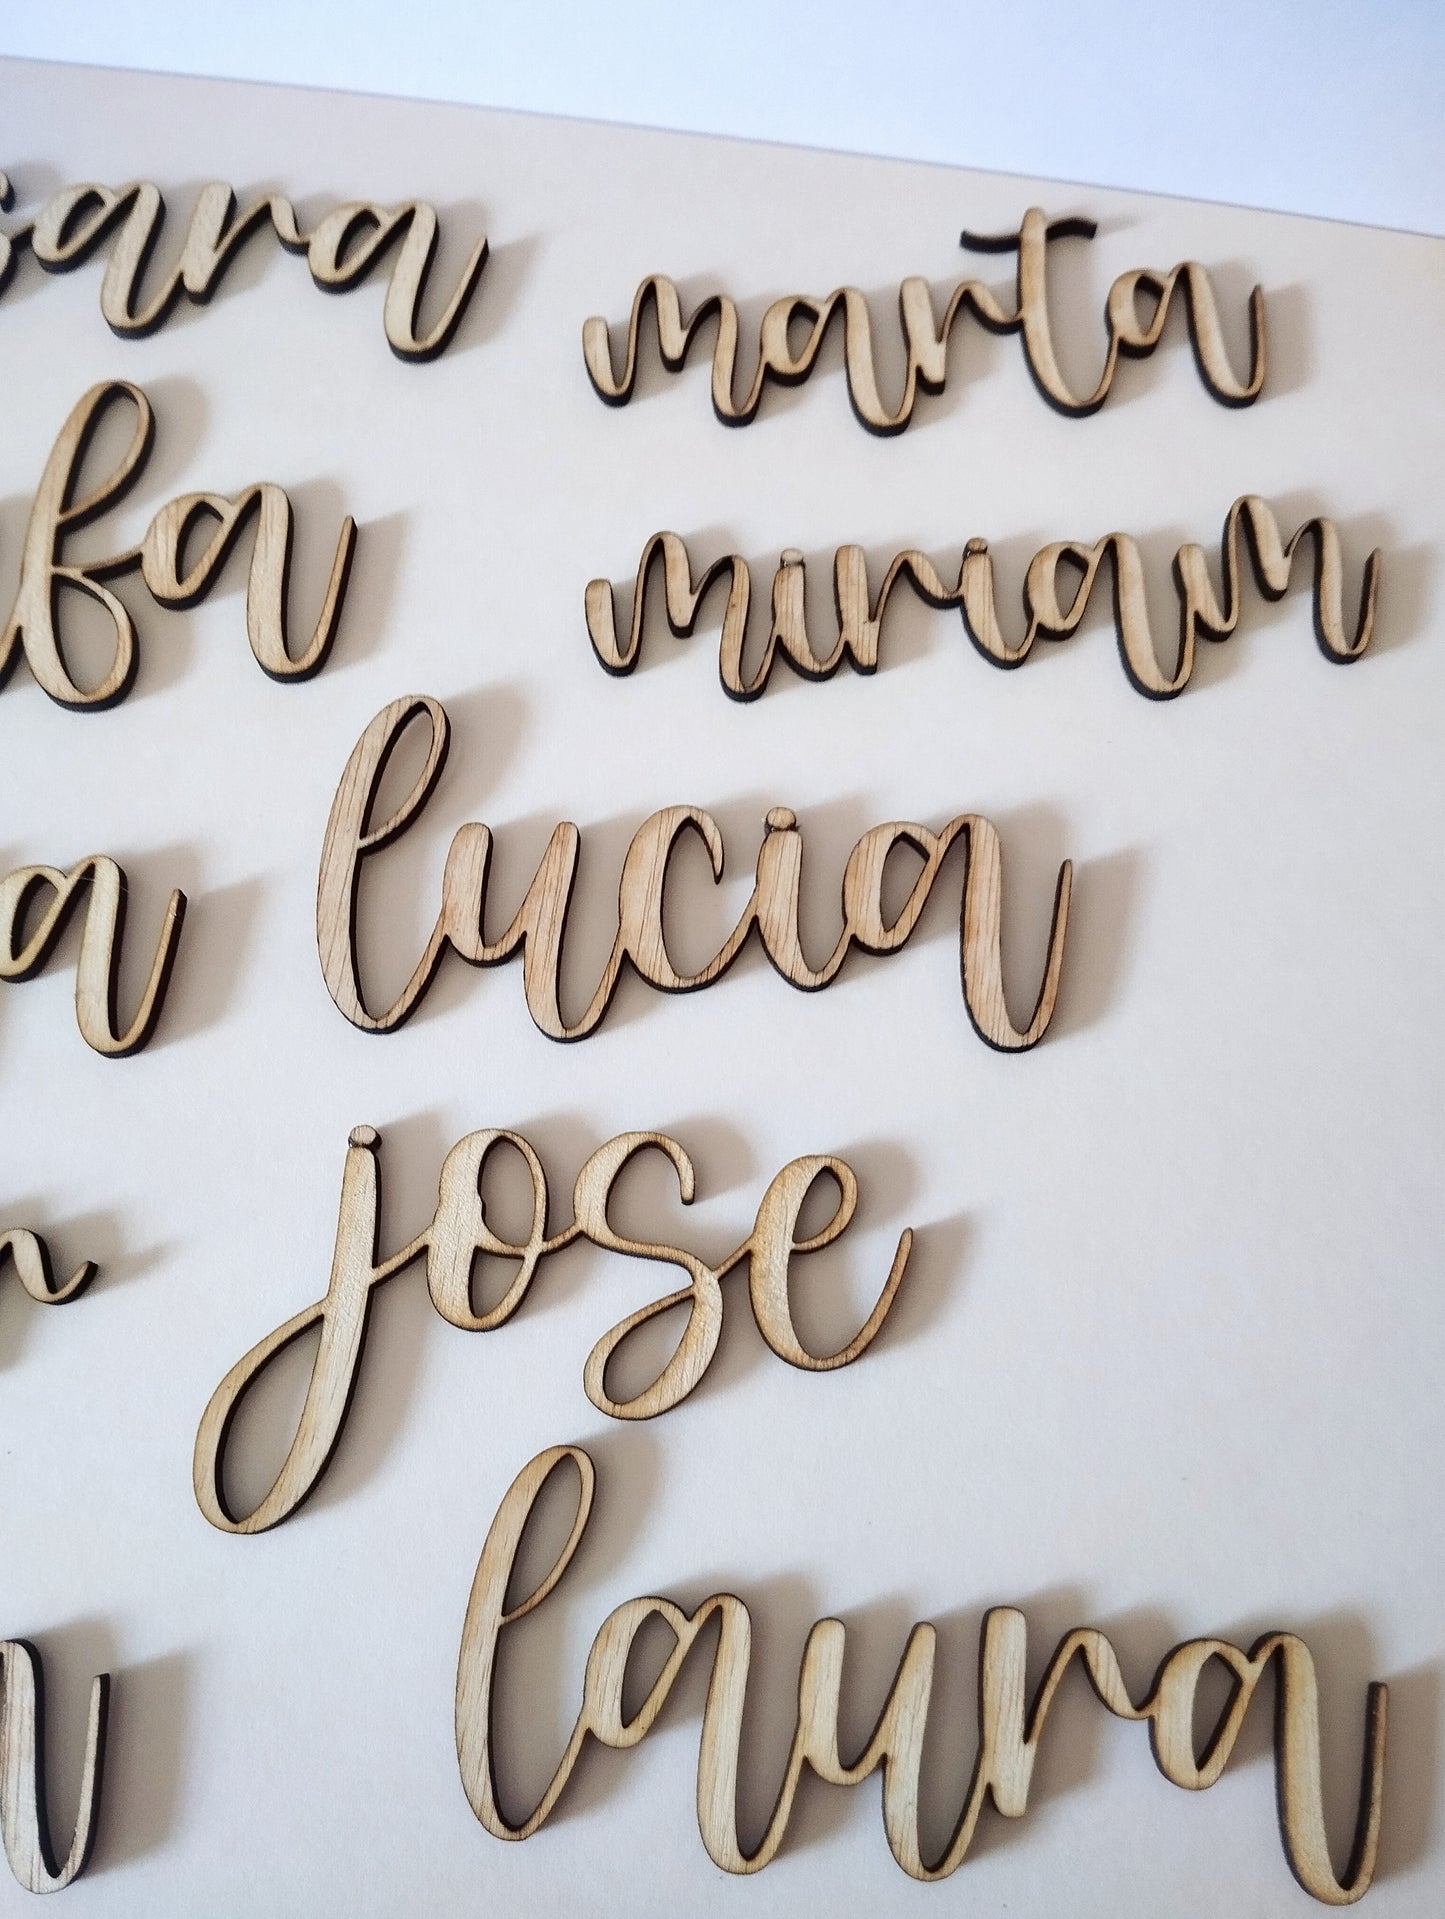 sara marta
fa miriam
a lucia
jose
laura